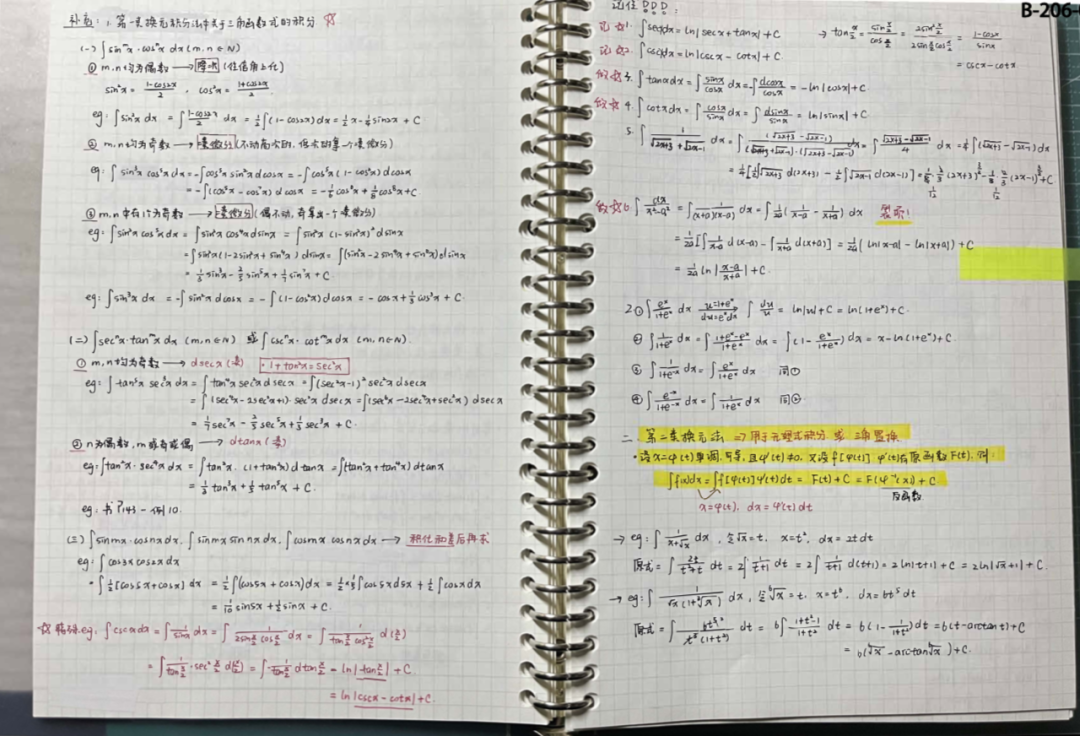 补充：1. 第一类换元积分法中关于三角函数式的积分 ☆
(一) ∫sinⁿx·cosᵐx dx (m,n∈N)
① m,n均为偶数 → 降次 (往倍角上化)
sin²x = (1-cos2x)/2 , cos²x = (1+cos2x)/2
eg: ∫sin²x dx = ∫(1-cos2x)/2 dx = 1/2∫(1-cos2x)dx = 1/2x - 1/4 sin2x + C
② m,n均为奇数 → 凑微分 (不动高次的, 低次的拿一个凑微分)
= -∫(cos⁵x - cos⁷x) d cosx = -1/6 cos⁶x + 1/8 cos⁸x + C
③ m,n中有1个为奇数 → 凑微分 (偶不动, 奇拿出一个凑微分)
= ∫sin²x(1-2sin²x+sin⁴x) dsinx = ∫(sin²x-2sin⁴x+sin⁶x)dsinx
= 1/3 sin³x - 2/5 sin⁵x + 1/7 sin⁷x + C.
eg: ∫sin³x dx = -∫sin²x dcosx = -∫(1-cos²x) dcosx = -cosx + 1/3 cos³x + C.
(二) ∫secⁿx·tanᵐx dx (m,n∈N) 或 ∫cscⁿx·cotᵐx dx (m,n∈N).
① m,n均为奇数 → dsecx (凑) · 1+tan²x=sec²x
eg: ∫tan⁵x sec³x dx = ∫tan⁴x sec²x dsecx = ∫(sec²x-1)² sec²x dsecx
= ∫(sec⁴x-2sec²x+1)·sec²x dsecx = ∫(sec⁶x-2sec⁴x+sec²x) dsecx
= 1/7 sec⁷x - 2/5 sec⁵x + 1/3 sec³x + C.
② n为偶数, m或奇或偶 → dtanx (凑)
eg: ∫tan²x·sec⁴x dx = ∫tan²x·(1+tan²x) dtanx = ∫(tan²x+tan⁴x)dtanx
= 1/3 tan³x + 1/5 tan⁵x + C.
eg: 书P143 - 例10.
(三) ∫sinmx·cosnx dx, ∫sinmx sinnx dx, ∫cosmx cosnx dx → 积化和差后再求
eg: ∫cos3x cos2x dx
· ∫1/2[cos5x+cosx] dx = 1/2∫(cos5x+cosx)dx = 1/2×1/5∫cos5x d5x + 1/2∫cosx dx
= 1/10 sin5x + 1/2 sinx + C.
eg: ∫cscx dx = ∫1/sinx dx = ∫1/(2sin x/2 cos x/2) dx = ∫1/(tan x/2 cos² x/2) d(x/2)
= ∫1/(tan x/2)·sec² x/2 d(x/2) = ∫1/(tan x/2) d tan x/2 = ln|tan x/2| + C.
= ln|cscx - cotx| + C.
B-206-
记住 !!!
记住1. ∫secxdx = ln|secx+tanx| + C → tan x/2 = (sin x/2)/(cos x/2) = (2sin² x/2)/(2sin x/2 cos x/2) = (1-cosx)/sinx
记住2. ∫cscxdx = ln|cscx-cotx| + C. = cscx-cotx
3. ∫tanxdx = ∫sinx/cosx dx = -∫dcosx/cosx = -ln|cosx| + C.
4. ∫cotxdx = ∫cosx/sinx dx = ∫dsinx/sinx = ln|sinx| + C.
5. ∫1/(√(2x+3)+√(2x-1)) dx = ∫(√(2x+3)-√(2x-1))/((√(2x+3)+√(2x-1))·(√(2x+3)-√(2x-1))) dx = ∫(√(2x+3)-√(2x-1))/4 dx = 1/4∫(√(2x+3)-√(2x-1))dx
6. ∫dx/(x²-a²) = ∫1/((x+a)(x-a)) dx = ∫1/2a(1/(x-a) - 1/(x+a)) dx 裂项!
= 1/2a[∫1/(x-a) d(x-a) - ∫1/(x+a) d(x+a)] = 1/2a(ln|x-a| - ln|x+a|) + C
= 1/2a ln|(x-a)/(x+a)| + C.
2 ① ∫eˣ/(1+eˣ) dx u=1+eˣ du=eˣdx ∫du/u = ln|u| + C = ln(1+eˣ) + C.
② ∫1/(1+eˣ) dx = ∫(1+eˣ-eˣ)/(1+eˣ) dx = ∫(1 - eˣ/(1+eˣ)) dx = x - ln(1+eˣ) + C.
③ ∫1/(1+e⁻ˣ) dx = ∫eˣ/(1+eˣ) dx 同①
④ ∫e⁻ˣ/(1+e⁻ˣ) dx = ∫1/(1+eˣ) dx 同②
二、第二类换元法 ⇒ 用于无理式积分 或 三角置换
· 设x=φ(t)单调, 可导, 且φ'(t)≠0, 又设f[φ(t)]·φ'(t)有原函数F(t), 则:
∫f(x)dx = ∫f[φ(t)]φ'(t)dt = F(t) + C = F(φ⁻¹(x)) + C
反函数
x=φ(t), dx=φ'(t)dt
→ eg: ∫1/(x+√x) dx, 令√x=t, x=t², dx=2tdt
原式 = ∫2t/(t²+t) dt = 2∫1/(t+1) dt = 2∫1/(t+1) d(t+1) = 2ln|t+1| + C = 2ln|√x+1| + C.
→ eg: ∫1/(√x(1+∛x)) dx, 令⁶√x=t, x=t⁶, dx=6t⁵dt
原式 = ∫6t⁵/(t³(1+t²)) dt = 6∫(1+t²-1)/(1+t²) dt = 6(1 - 1/(1+t²))dt = 6(t-arctant)+C
= 6(⁶√x - arctan⁶√x) + C.